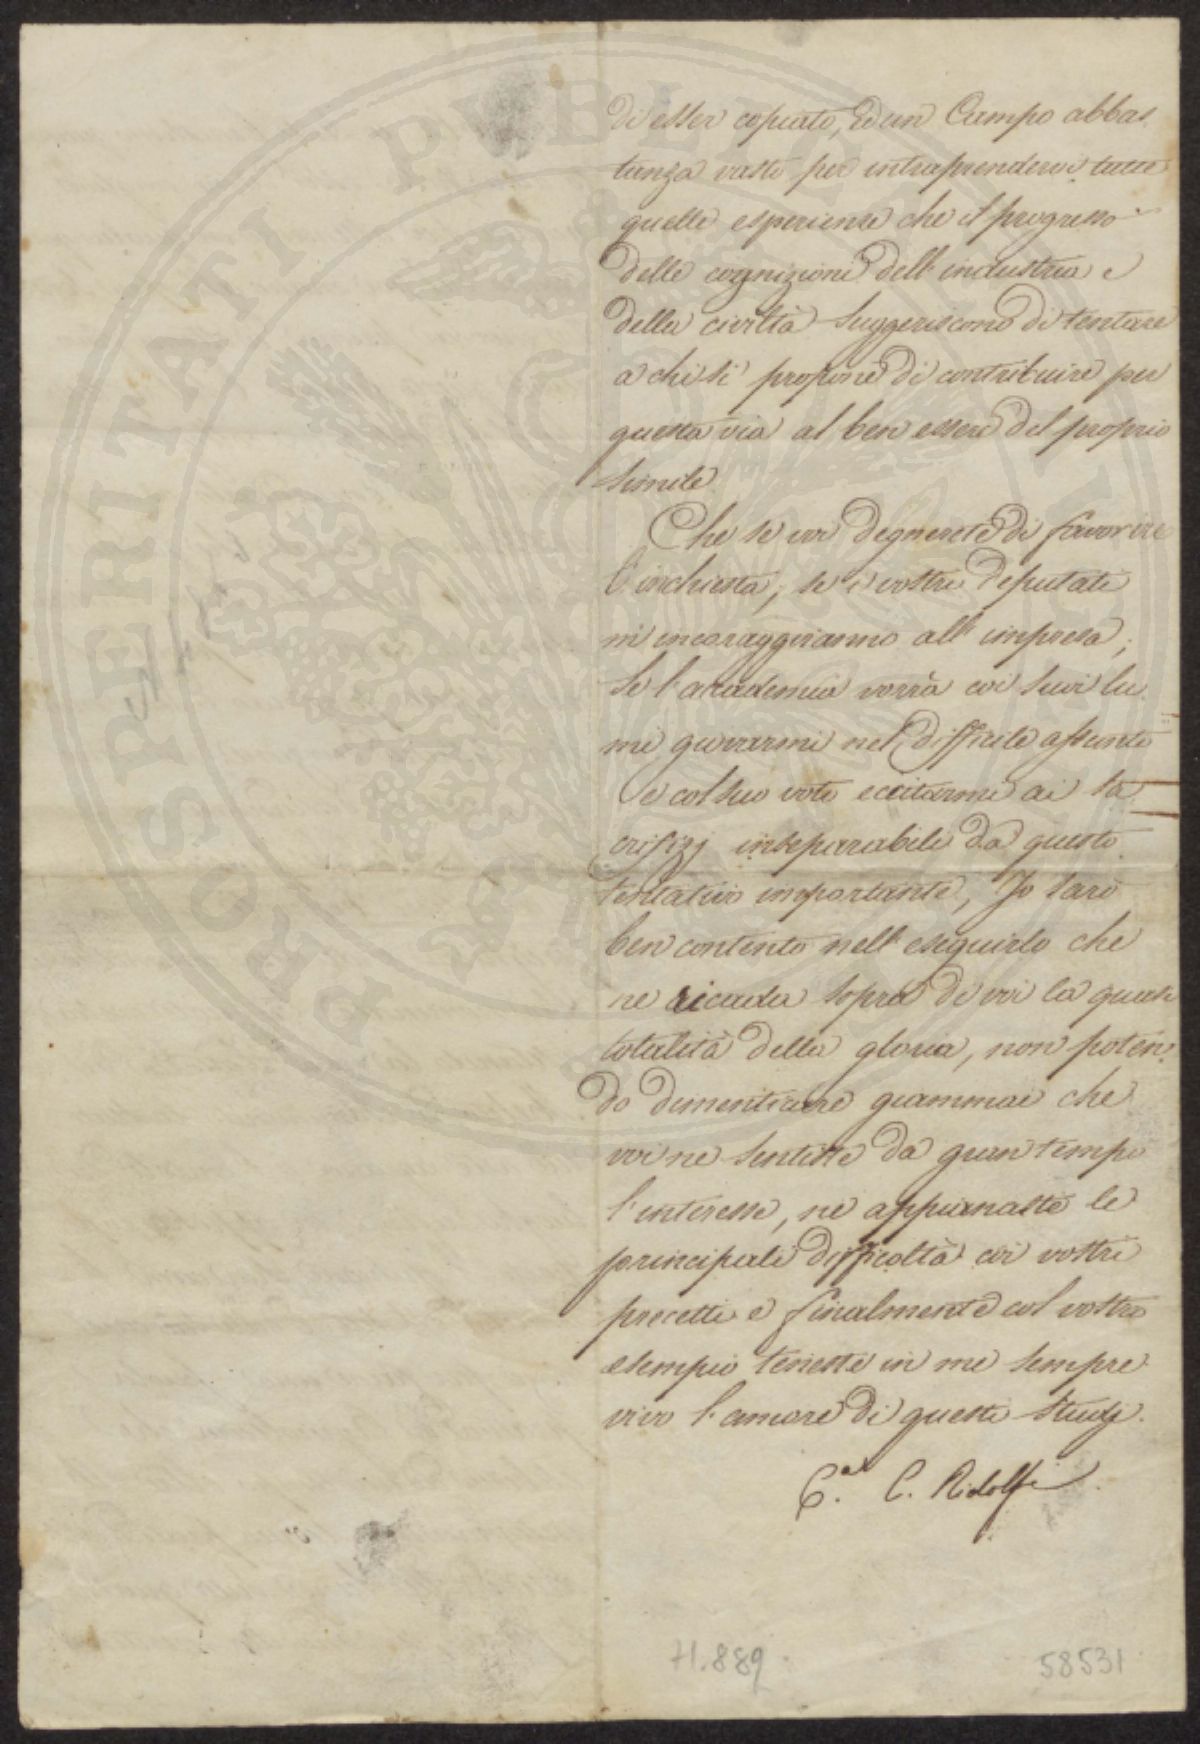 di esser copiato, ed un Campo abbas
tanza vasto per intraprendervi tutte
quelle esperienze che il progresso
delle cognizioni dell'industria e
della civiltà suggeriscono di tentare
a chi si propone di contribuire per
questa via al ben essere del proprio
simile.
Che se voi degnerete di favorire
l'inchiesta, se i vostri deputati
m'incoraggiranno all'impresa;
se l'accademia vorrà coi suoi lu
mi giovarmi nel difficile assunto
e col suo voto eccitarmi ai sa
crifizj inseparabili da questo
tentativo importante, Io sarò
ben contento nell'eseguirlo che
ne ricada sopra di voi la quasi
totalità della gloria, non poten
do dimenticare giammai che
voi ne sentiste da gran tempo
l'interesse, ne appianaste le
principali difficoltà coi vostri
precetti e finalmente col vostro
esempio teneste in me sempre
vivo l'amore di questi studj.
C. Ridolfi
H.889.
58531
PROSPERITATI PVBLIC